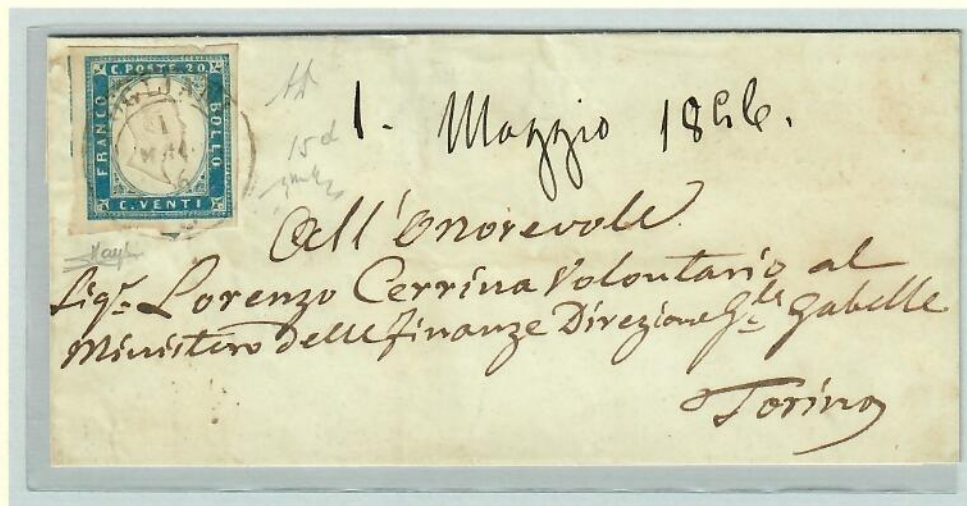 C. POSTE 20
FRANCO
BOLLO
C. VENTI
1. Maggio 1856.
15 d
All' Onorevole
Sigr. Lorenzo Cerrina Volontario al
Ministero delle Finanze Direzione Gle Gabelle
Torino